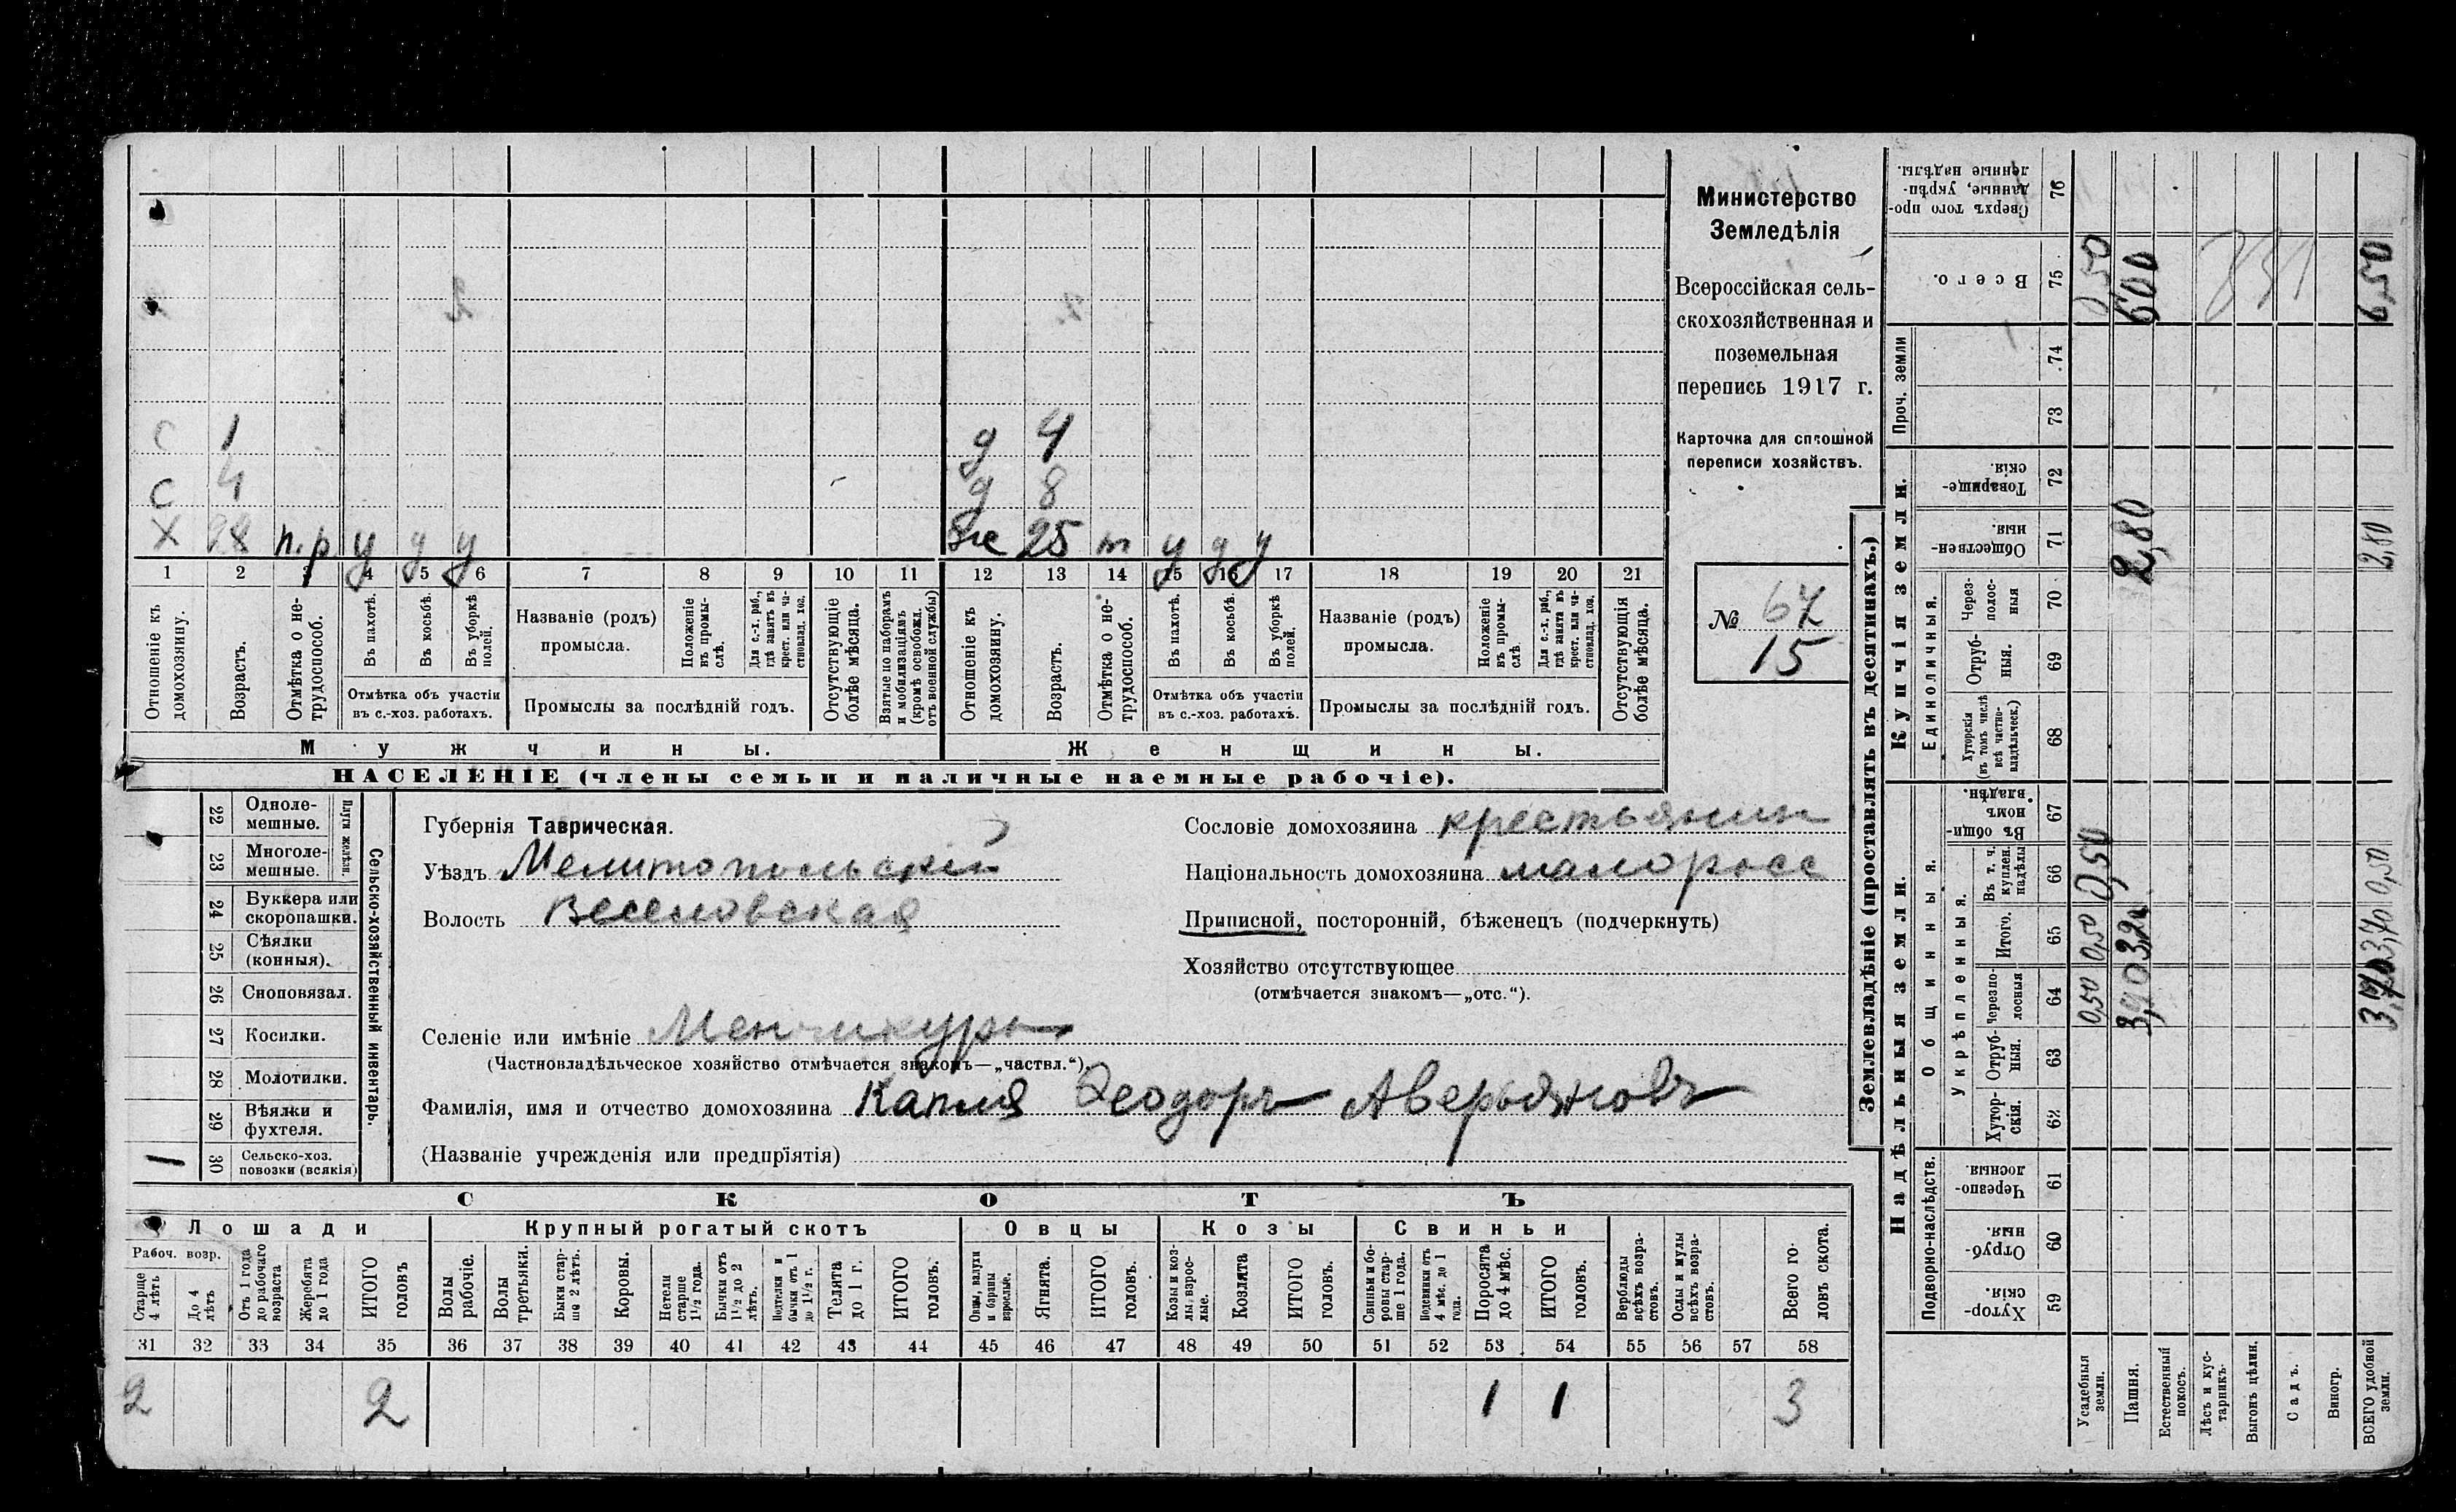 с 1 д 4
с 4 д 8
х 28 п.р у у у же 25 т у у у
1 2 3 4 5 6 7 8 9 10 11 12 13 14 15 16 17 18 19 20 21
Отношеніе къ домохозяину.
Возрастъ.
Отмѣтка о не-трудоспособ.
Въ пахотѣ.
Въ косьбѣ.
Въ уборкѣ полей.
Отмѣтка объ участіи въ с.-хоз. работахъ.
Названіе (родъ) промысла.
Положеніе въ промы-слѣ.
Для с.-х. раб., гдѣ занятъ въ крест. или ча-стновлад. хоз.
Промыслы за послѣдній годъ.
Отсутствующіе болѣе мѣсяца.
Взятые по наборамъ и мобилизаціямъ (кромѣ освобожд. отъ военной службы)
Отношеніе къ домохозяину.
Возрастъ.
Отмѣтка о не-трудоспособ.
Въ пахотѣ.
Въ косьбѣ.
Въ уборкѣ полей.
Отмѣтка объ участіи въ с.-хоз. работахъ.
Названіе (родъ) промысла.
Положеніе въ промы-слѣ.
Для с.-х. раб., гдѣ занята въ крест. или ча-стновлад. хоз.
Промыслы за послѣдній годъ.
Отсутствующія болѣе мѣсяца.
Мужчины. Женщины.
НАСЕЛЕНІЕ (члены семьи и наличные наемные рабочіе).
Министерство
Земледѣлія
Всероссійская сель-
скохозяйственная и
поземельная
перепись 1917 г.
Карточка для сплошной
переписи хозяйствъ.
№ 67
15
Сельско-хозяйственный инвентарь.
Плуги желѣзн.
22 Одноле-мешные.
23 Многоле-мешные.
24 Буккера или скоропашки.
25 Сѣялки (конныя).
26 Сноповязал.
27 Косилки.
28 Молотилки.
29 Вѣялки и фухтеля.
1 30 Сельско-хоз. повозки (всякія)
Губернія Таврическая.
Уѣздъ Мелитопольскій
Волость Веселовская
Сословіе домохозяина крестьянин
Національность домохозяина малоросс
Приписной, посторонній, бѣженецъ (подчеркнуть)
Хозяйство отсутствующее
(отмѣчается знакомъ—„отс.“).
Селеніе или имѣніе Менчикуры
(Частновладѣльческое хозяйство отмѣчается знакомъ—„частвл.“).
Фамилія, имя и отчество домохозяина Капля Ѳеодоръ Аверьяновъ
(Названіе учрежденія или предпріятія)
СКОТЪ
Лошади Крупный рогатый скотъ Овцы Козы Свиньи
Рабоч. возр.
Старше 4 лѣтъ
До 4 лѣтъ
Отъ 1 года до рабочаго возраста
Жеребята до 1 года
ИТОГО головъ
Волы рабочіе.
Волы третьяки.
Быки стар-ше 2 лѣтъ.
Коровы.
Нетели старше 1½ года.
Бычки отъ 1½ до 2 лѣтъ.
Подтелки и бычки отъ 1 до 1½ г.
Телята до 1 г.
ИТОГО головъ.
Овцы, валухи и бараны взрослые.
Ягнята.
ИТОГО головъ.
Козы и коз-лы, взрос-лые.
Козлята
ИТОГО головъ.
Свиньи и бо-ровы стар-ше 1 года.
Подсвинки отъ 4 мѣс. до 1 года.
Поросята до 4 мѣс.
ИТОГО головъ.
Верблюды всѣхъ возра-стовъ.
Ослы и мулы всѣхъ возра-стовъ.
Всего го-ловъ скота.
31 32 33 34 35 36 37 38 39 40 41 42 43 44 45 46 47 48 49 50 51 52 53 54 55 56 57 58
2 2 1 1 3
Землевладѣніе (проставлять въ десятинахъ.)
Надѣльныя земли. Купчія земли.
Подворно-наслѣдств.
Общинныя.
Укрѣпленныя.
Единоличныя.
Проч. земли
76 Сверхъ того про-данные, укрѣп-ленные надѣлы.
75 Всего. 0,50 6,00 6,50
831
74
73
72 Товарище-скія.
71 Обществен-ныя. 2,80 2,80
70 Через-полос-ныя
69 Отруб-ныя.
68 Хуторскія (въ томъ числѣ всѣ частно-владѣльческ.)
67 Въ общи-номъ владѣн.
66 Въ т. ч. куплен. надѣлы 0,50 0,50
65 Итого. 0,50 3,20 3,70
64 Черезпо-лосныя 0,50
63 Отруб-ныя.
62 Хутор-скія.
61 Черезпо-лосныя.
60 Отруб-ныя.
59 Хутор-скія.
Усадебныя земли.
Пашня.
Естественный покосъ.
Лѣсъ и кус-тарникъ.
Выгонъ цѣлин.
Садъ.
Виногр.
ВСЕГО удобной земли.